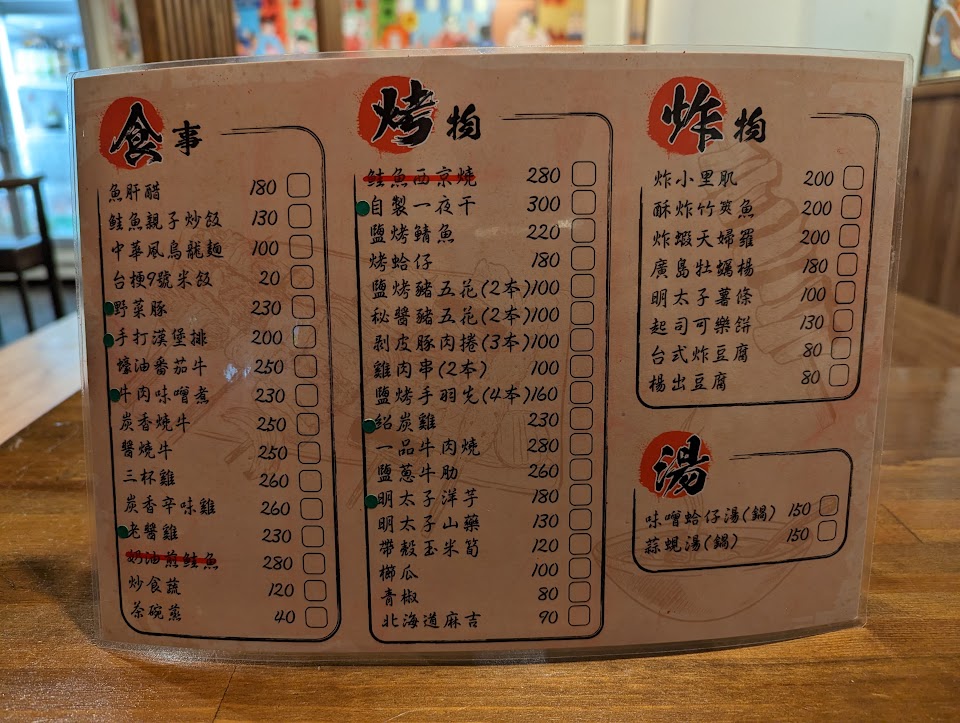 食事
魚肝醋 180
鮭魚親子炒飯 130
中華風烏龍麵 100
台梗9號米飯 20
野菜豚 230
手打漢堡排 200
蠔油番茄牛 250
牛肉味噌煮 230
炭香燒牛 250
醬燒牛 250
三杯雞 260
炭香辛味雞 260
老醬雞 230
奶油煎鮭魚 280
炒食蔬 120
茶碗蒸 40
烤物
鮭魚西京燒 280
自製一夜干 300
鹽烤鯖魚 220
烤蛤仔 180
鹽烤豬五花(2本) 100
秘醬豬五花(2本) 100
剝皮豚肉捲(3本) 100
雞肉串(2本) 100
鹽烤手羽先(4本) 160
紹炭雞 230
一品牛肉燒 280
鹽蔥牛肋 260
明太子洋芋 180
明太子山藥 130
帶殼玉米筍 120
櫛瓜 100
青椒 80
北海道麻吉 90
炸物
炸小里肌 200
酥炸竹筴魚 200
炸蝦天婦羅 200
廣島牡蠣楊 180
明太子薯條 100
起司可樂餅 130
台式炸豆腐 80
楊出豆腐 80
湯
味噌蛤仔湯(鍋) 150
蒜蜆湯(鍋) 150